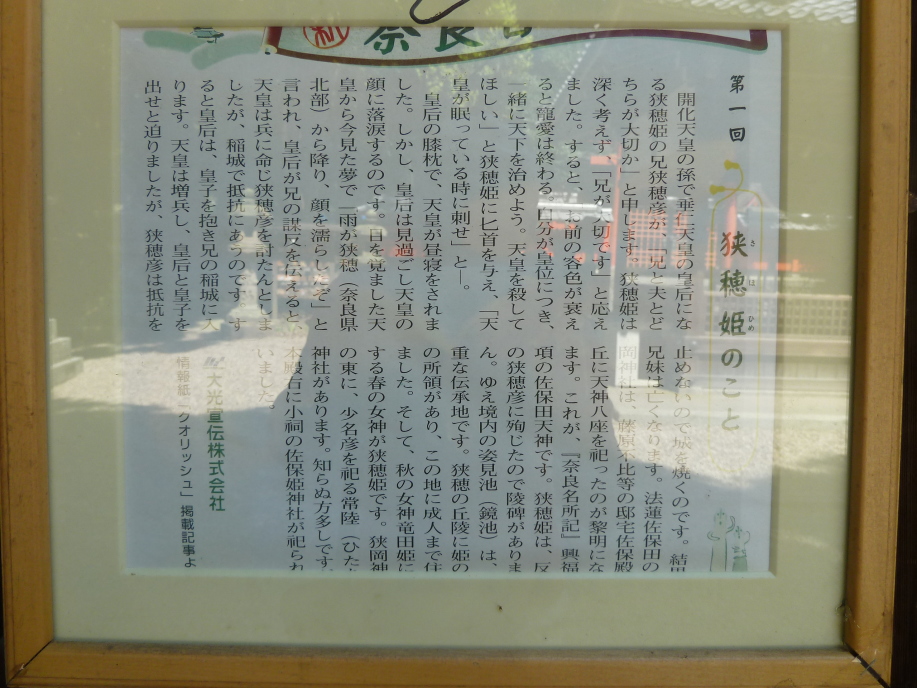 新 奈良
第一回
狭穂姫のこと
さ ほ ひめ
開化天皇の孫で垂仁天皇の皇后にな
る狭穂姫の兄狭穂彦が、「兄と夫とど
ちらが大切か」と申します。狭穂姫は
深く考えず、「兄が大切です」と応え
ました。すると、「お前の容色が衰え
ると寵愛は終わる。自分が皇位につき、
一緒に天下を治めよう。天皇を殺して
ほしい」と狭穂姫に匕首を与え、「天
皇が眠っている時に刺せ」と―。
皇后の膝枕で、天皇が昼寝をされま
した。しかし、皇后は見過ごし天皇の
顔に落涙するのです。目を覚ました天
皇から今見た夢で「雨が狭穂（奈良県
北部）から降り、顔を濡らしたぞ」と
言われ、皇后が兄の謀反を伝えると、
天皇は兵に命じ狭穂彦を討たんとしま
したが、稲城で抵抗にあうのです。す
ると皇后は、皇子を抱き兄の稲城に入
ります。天皇は増兵し、皇后と皇子を
出せと迫りましたが、狭穂彦は抵抗を
止めないので城を焼くのです。結
兄妹は亡くなります。法蓮佐保田の
岡神社は、藤原不比等の邸宅佐保殿
丘に天神八座を祀ったのが黎明にな
ます。これが、『奈良名所記』興福
項の佐保田天神です。狭穂姫は、反
の狭穂彦に殉じたので陵碑がありま
ん。ゆえ境内の姿見池（鏡池）は、
重な伝承地です。狭穂の丘陵に姫の
の所領があり、この地に成人まで住
ました。そして、秋の女神竜田姫に
する春の女神が狭穂姫です。狭岡神
の東に、少名彦を祀る常陸（ひた
神社があります。知らぬ方多しです。
本殿右に小祠の佐保姫神社が祀られ
いました。
大光宣伝株式会社
情報紙「クオリッシュ」掲載記事よ